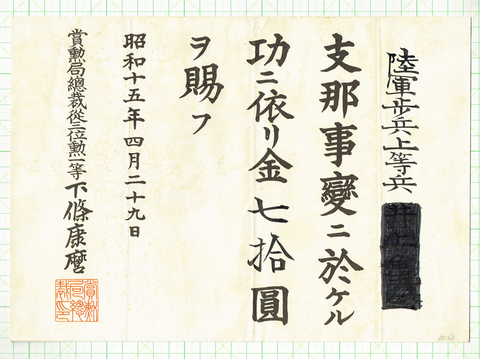 陸軍歩兵上等兵
支那事變ニ於ケル
功ニ依リ金七拾圓
ヲ賜フ
昭和十五年四月二十九日
賞勲局總裁從三位勲一等下條康麿